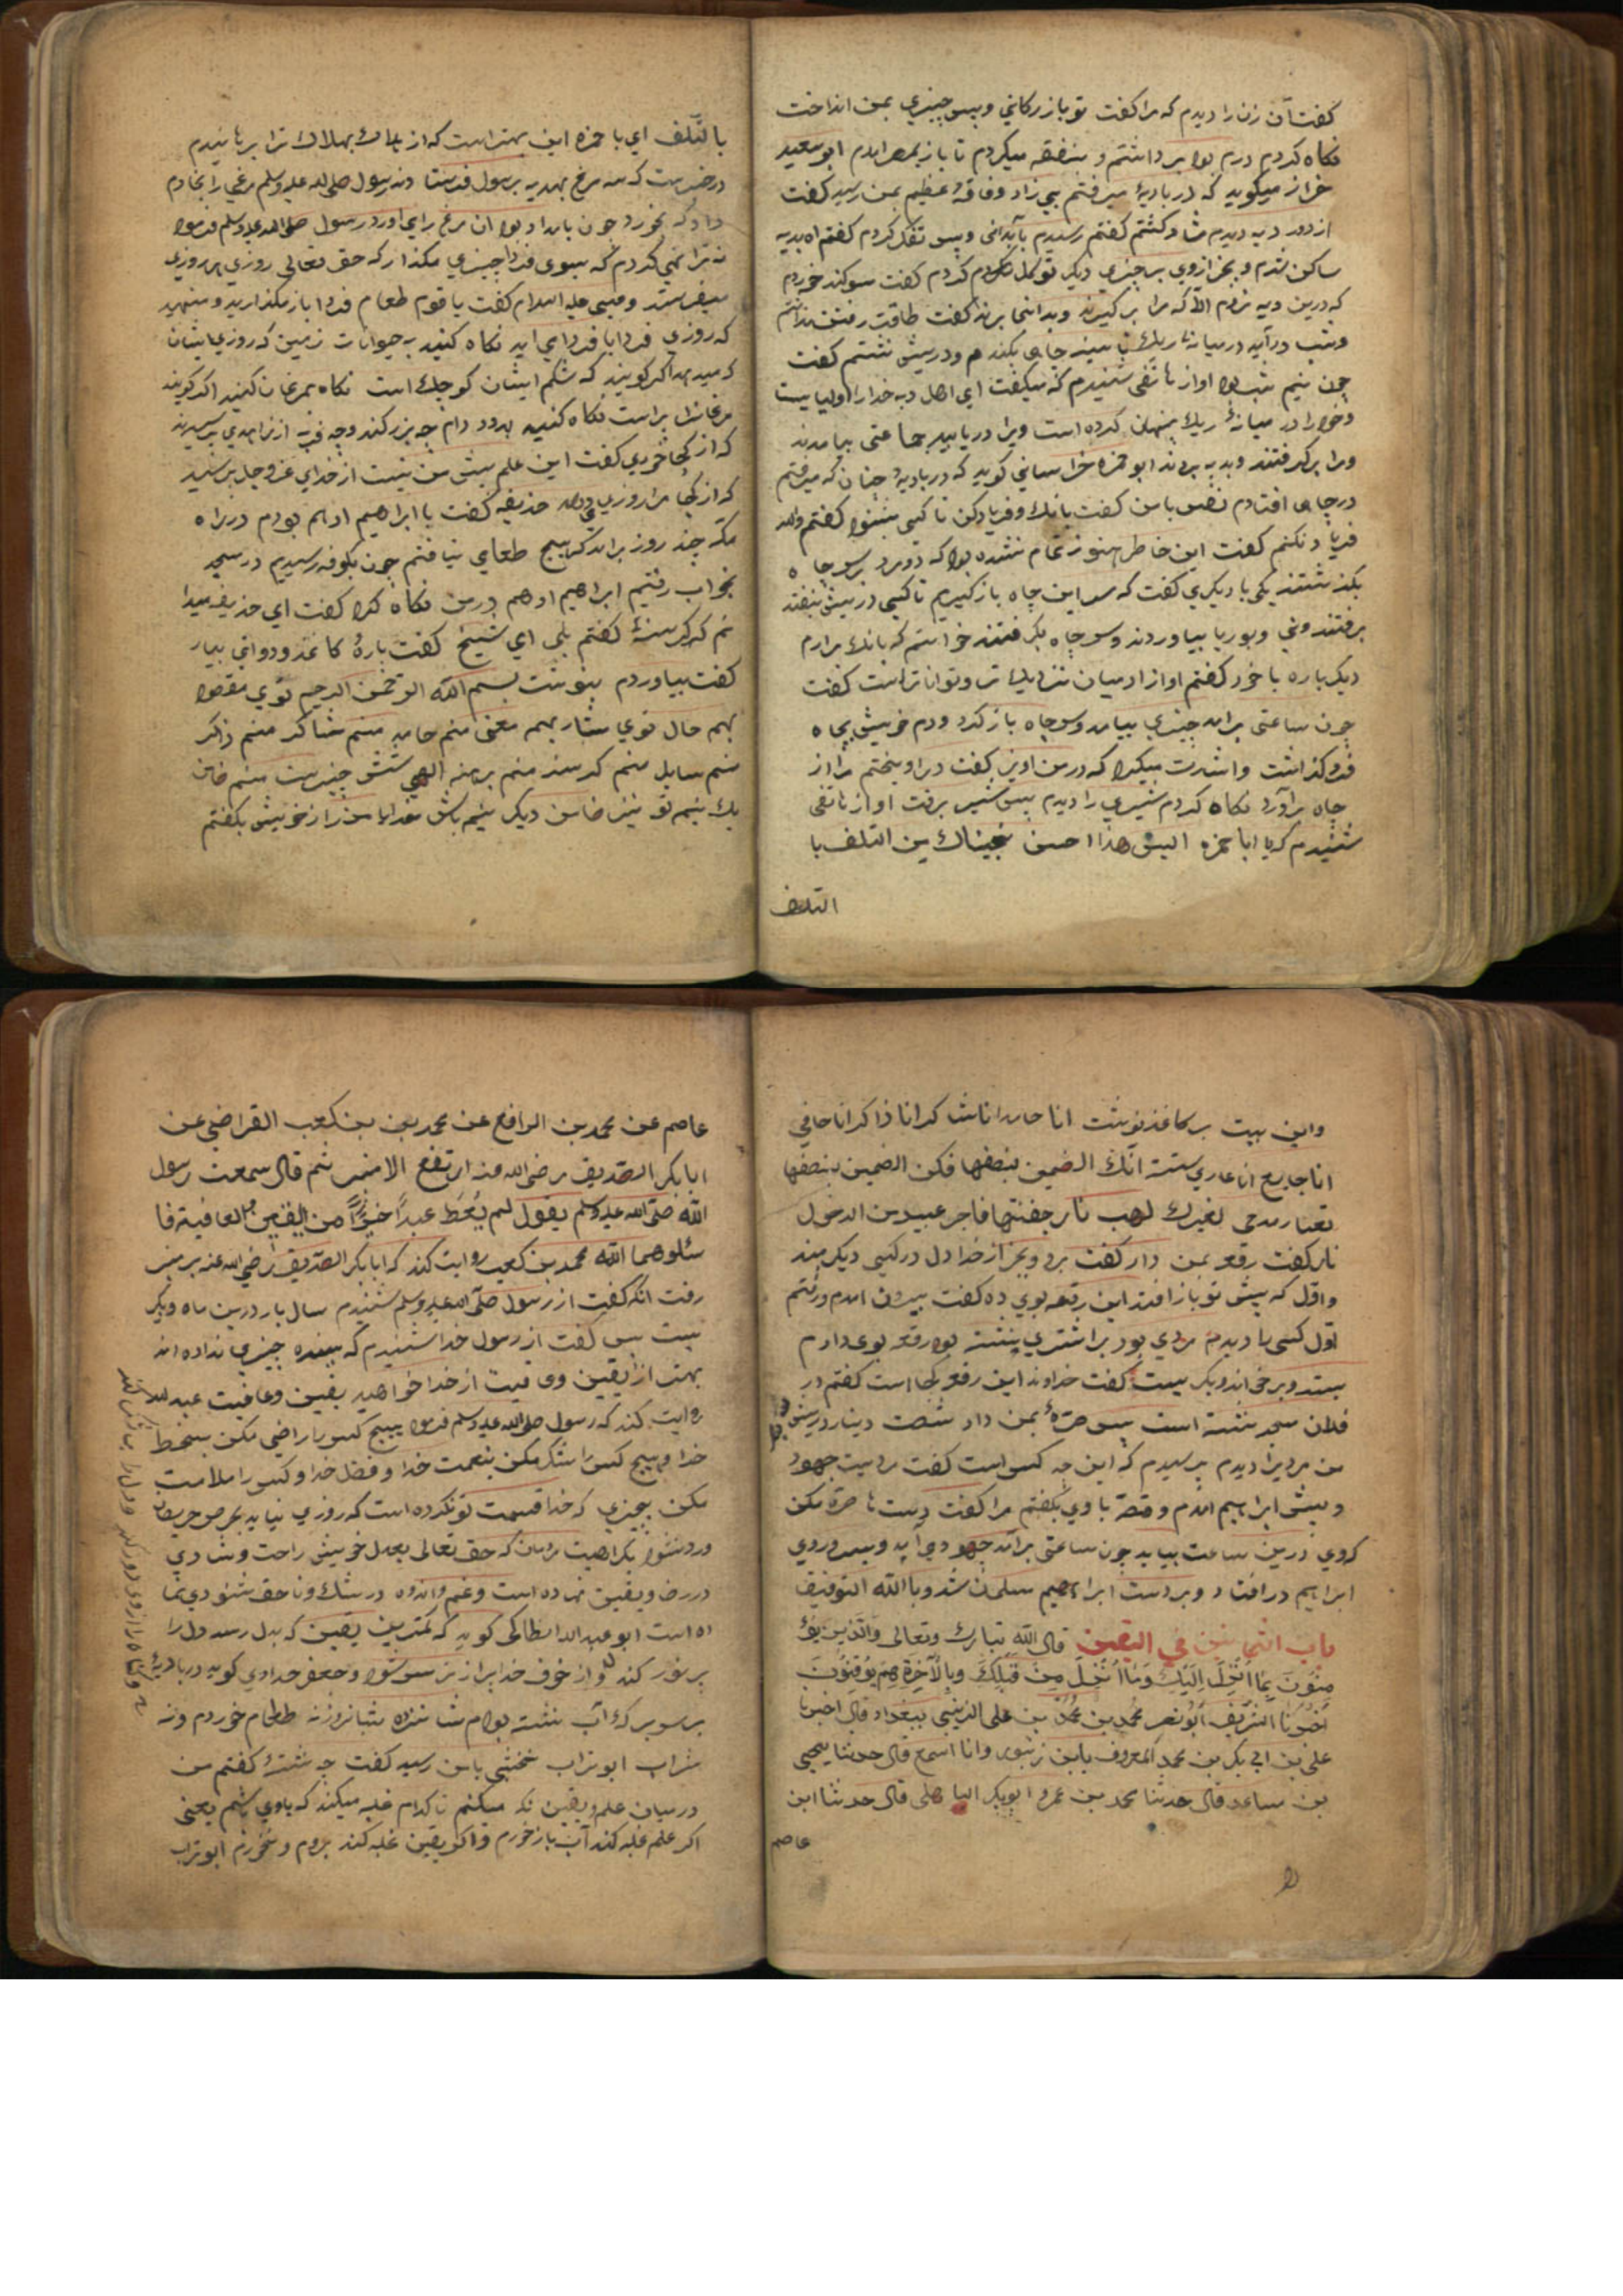 کفت آن زنرا دیدم که مرا کفت تو بازرکانی وپس چیزی بمن انداخت
نکاه کردم درم بود برداشتم و بنفقه میکردم تا باز بمصر امدم ابو سعید
خراز میکوید که در بادیهٔ میرفتم بی زاد وفاقهٔ عظیم بمن رسید کفت
از دور دیه دیدم شاد کشتم کفتم رسیدم بآبدانی وپس تفکر کردم کفتم اه بدیه
ساکن شدم وبجز ازوی بر چیزی دیکر توکل کردم کفت سوکند خوردم
که درین دیه نروم الا که مرا برکیرند وبدانجا برند کفت طاقت رفتن نداشتم
وشب درآید درمیانهٔ ریک تا بسینه جای بکندم ودرپیش نشستم کفت
چون نیم شب بود اواز هاتفی شنیدم که میکفت ای اهل دیه خدارا اولیاییست
وخودرا در میانهٔ ریک پنهان کرده است ویرا دریابید جماعتی بیامدند
ومرا برکرفتند وبدیه بردند ابو حمزه خراسانی کوید که دربادیهٔ چنان که میرفتم
درچاهی افتادم نفس با من کفت بانک وفریاد کن تا کسی بشنود کفتم والله
فریاد نکنم کفت این خاطر هنوز تمام نشده بود که دو مرد برسر چاه
بکذشتند یکی با دیکری کفت که سر این چاه باز کیریم تا کسی درپیش نیفتد
برفتند ونی وبوریا بیاوردند وسر چاه بکرفتند خواستم که بانک برارم
دیکرباره با خود کفتم اواز ازمیان نزدیکتر وتواناتر است کفت
چون ساعتی برامد چیزی بیامد وسر چاه باز کرد ودم خویش بچاه
فرو کذاشت واشارت میکرد که در من اویز کفت دراویختم مرا از
چاه برآورد نکاه کردم شیری را دیدم پس شیر برفت اواز هاتفی
شنیدم که یا ابا حمزه الیس هذا احسن نجیناک من التلف با
التلف
بالتلف ای با حمزه این بهتر است که از هلاک بهلاک ترا برهانیدم
درخبرست که سه مرغ بهدیه برسول فرستادند رسول صلی الله علیه وسلم مرغی را بخادم
داد که بخورد چون بامداد بود ان مرغ رای اورد رسول صلی الله علیه وسلم فرمود
نه ترا نهی کردم که بسوی فردا چیزی مکذار که حق تعالی روزی هر روزی
میفرستد وعیسی علیه السلام کفت یا قوم طعام فردا باز مکذارید ومنهید
که روزی فردا با فردا می اید نکاه کنید بحیوانات زمین که روزی ایشان
که میدهد اکر کویند که شکم ایشان کوچک است نکاه بمرغان کنید اکر کویند
مرغانرا پر است نکاه کنید بدد ودام چه بزرکند وچه فربه از زاهدی پرسیدند
که از کجا خوری کفت این علم پیش من نیست از خدای عز وجل پرسید
که از کجا مرا روزی میدهد حذیفه کفت با ابراهیم ادهم بودم درراه
مکه چند روز برامد که هیچ طعامی نیافتم چون بکوفه رسیدیم درمسجد
بخواب رفتیم ابراهیم ادهم درمن نکاه کرد کفت ای حذیفه میدا
نم که کرسنهٔ کفتم بلی ای شیخ کفت پارهٔ کاغذ ودواتی بیار
کفت بیاوردم بنوشت بسم الله الرحمن الرحیم توی مقصود
بهمه حال توی مشار بهمه معنی منم حامد منم شاکر منم ذاکر
منم سایل منم کرسنه منم برهنه الهی شش چیزست منم ضامن
یک نیمه تو نیز ضامن دیکر نیمه باش خدایا من راز خویش بکفتم
واین بیت بر کاغذ نوشت انا حامد انا شاکر انا ذاکر انا حافی
انا جایع انا عاری ستة انک الضمین بنصفها فکن الضمین بنصفها
مدحی لغیرک لهب نار خفتها فاجر عبیدک من الدخول
نار کفت رقعه بمن داد کفت برو وبجز از خدا دل درکسی دیکر مبند
واول که پیش تو باز افتد این رقعه بوی ده کفت بیرون امدم ورفتم
اول کسی را دیدم مردی بود بر اشتری نشسته بود رقعه بوی دادم
بستد وبرخواند وبکریست کفت خداوند این رقعه کجا است کفتم در
فلان مسجد نشسته است پس صرهٔ بمن داد ششصت دینار درپیش
من مردیرا دیدم پرسیدم که این چه کس است کفت مردیست جهود
وپیش ابراهیم امدم وقصه با وی بکفتم مرا کفت دست با صره مکن
که وی درین ساعت بیاید چون ساعتی برآمد جهود می آید وبسر وروی
ابراهیم درافتاد وبر دست ابراهیم مسلمان شد وبالله التوفیق
باب الثمانین فی الیقین قال الله تبارک وتعالی والذین یؤ
منون بما انزل الیک وما انزل من قبلک وبالآخرة هم یوقنون
اخبرنا الشریف ابو نصر محمد بن محمد بن علی الزینبی ببغداد قال اخبرنا
علی بن ابی بکر بن محمد المعروف بابن زنبور وانا اسمع قال حدثنا یحیی
بن ساعد قال حدثنا محمد بن عمرو ابوبکر الباهلی قال حدثنا ابن
عاصم
عاصم عن محمد بن الرافع عن محمد بن بن کعب القراضی عن
ابابکر الصدیق رضی الله عنه ارتفع الا منبر ثم قال سمعت رسول
الله صلی الله علیه وسلم یقول لم یعط عبداً خیراً من الیقین والعافیة فا
سئلوهما الله محمد بن کعب روایت کند که ابابکر الصدیق رضی الله عنه بر منبر
رفت انکه کفت از رسول صلی الله علیه وسلم شنیدم سال پار درین ماه وبکر
یست پس کفت از رسول خدا شنیدم که ببنده چیزی نداده اند
بهتر از یقین وعافیت از خدا خواهید یقین وعافیت عبد الله
روایت کند که رسول صلی الله علیه وسلم فرمود بهیچ کس را راضی مکن بسخط
خدا وهیچ کس را شکر مکن بنعمت خدا وفضل خدا وکس را ملامت
مکن بچیزی که خدا قسمت تو نکرده است که روزی نیاید بحرص حریصان
وردنشود بکراهیت مردمان که حق تعالی بعدل خویش راحت وشادی
دررضا ویقین نهاده است وغم واندوه درشک وناخشنودی نها
ده است ابو عبد الله انطاکی کوید که کمترین یقین که بدل رسد دل را
پر نور کند واز خوف خدا پر از ترس شود وجعفر حدادی کوید دربادیهٔ
بر سر برکهٔ آب نشسته بودم شانزده شبانروز نه طعام خوردم ونه
شراب ابو تراب نخشبی با من رسید کفت چه نشستهٔ کفتم من
درمیان علم ویقین نکه میکنم تا کدام غلبه میکند که باوی باشم یعنی
اکر علم غلبه کند آب باز خورم واکر یقین غلبه کند بروم ونخورم ابو تراب